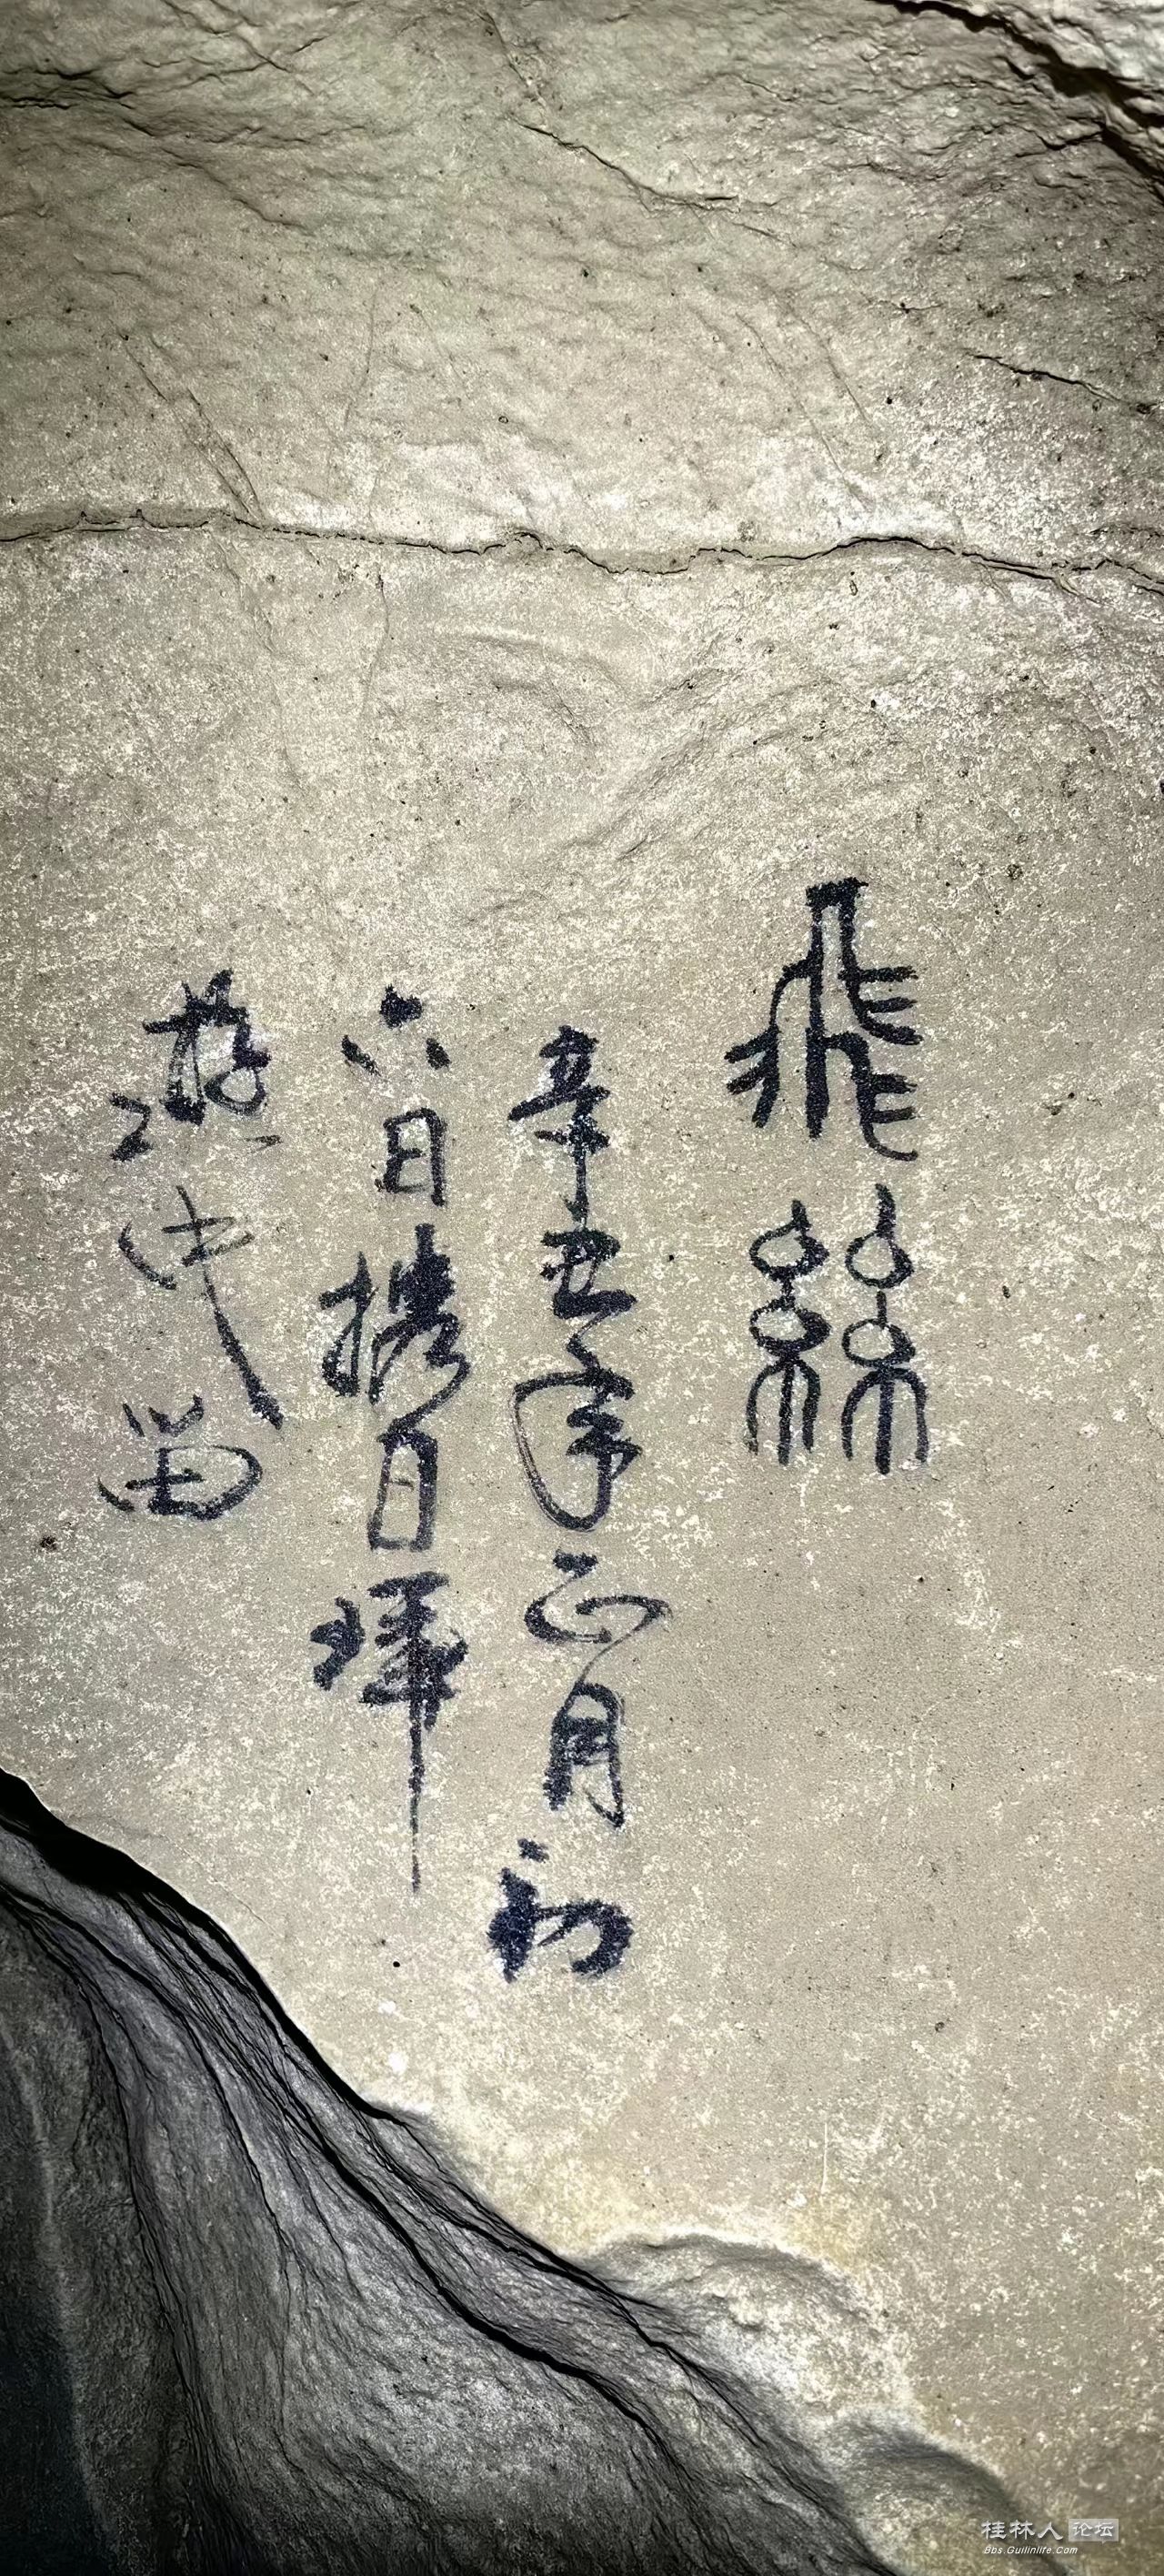 飛絲
辛丑年正月初
六日攜日暉
游此 留
桂林人论坛
Bbs.Guilinlife.Com